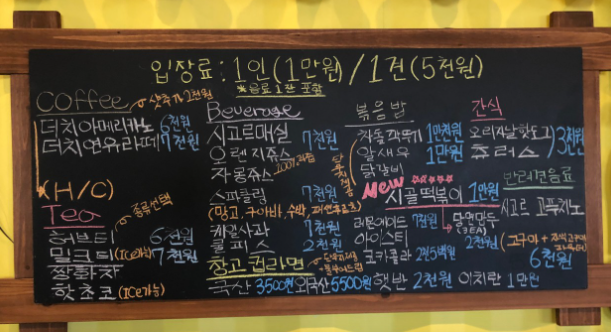 입장료 : 1인 (1만원) / 1견 (5천원)
*음료 1잔 포함
Coffee
샷추가 2천원
더치아메리카노 6천원
더치연유라떼 7천원
*(H/C)
Tea
종류선택
허브티 6천원
밀크티 (Ice가능) 7천원
쌍화차
핫초코 (ICe가능)
Beverage
시고르매실 7천원
오렌지쥬스
자몽쥬스
100%과즙
스파클링 7천원
(망고, 구아바, 수박, 패션후르츠)
체리사과 7천원
쿨피스 2천원
창고 컵라면
국산 3500원 외국산 5500원 햇반 2천원
볶음밥
차돌깍뚜기 1만천원
알새우 1만원
닭갈비
New
시골떡볶이 1만원
레몬에이드 7천원
아이스티
코카콜라 2천5백원
당면만두
(3EA)
2천원
간식
오리지날핫도그
츄러스
3천원
반려견음료
시고르 고푸치노
6천원
1만원